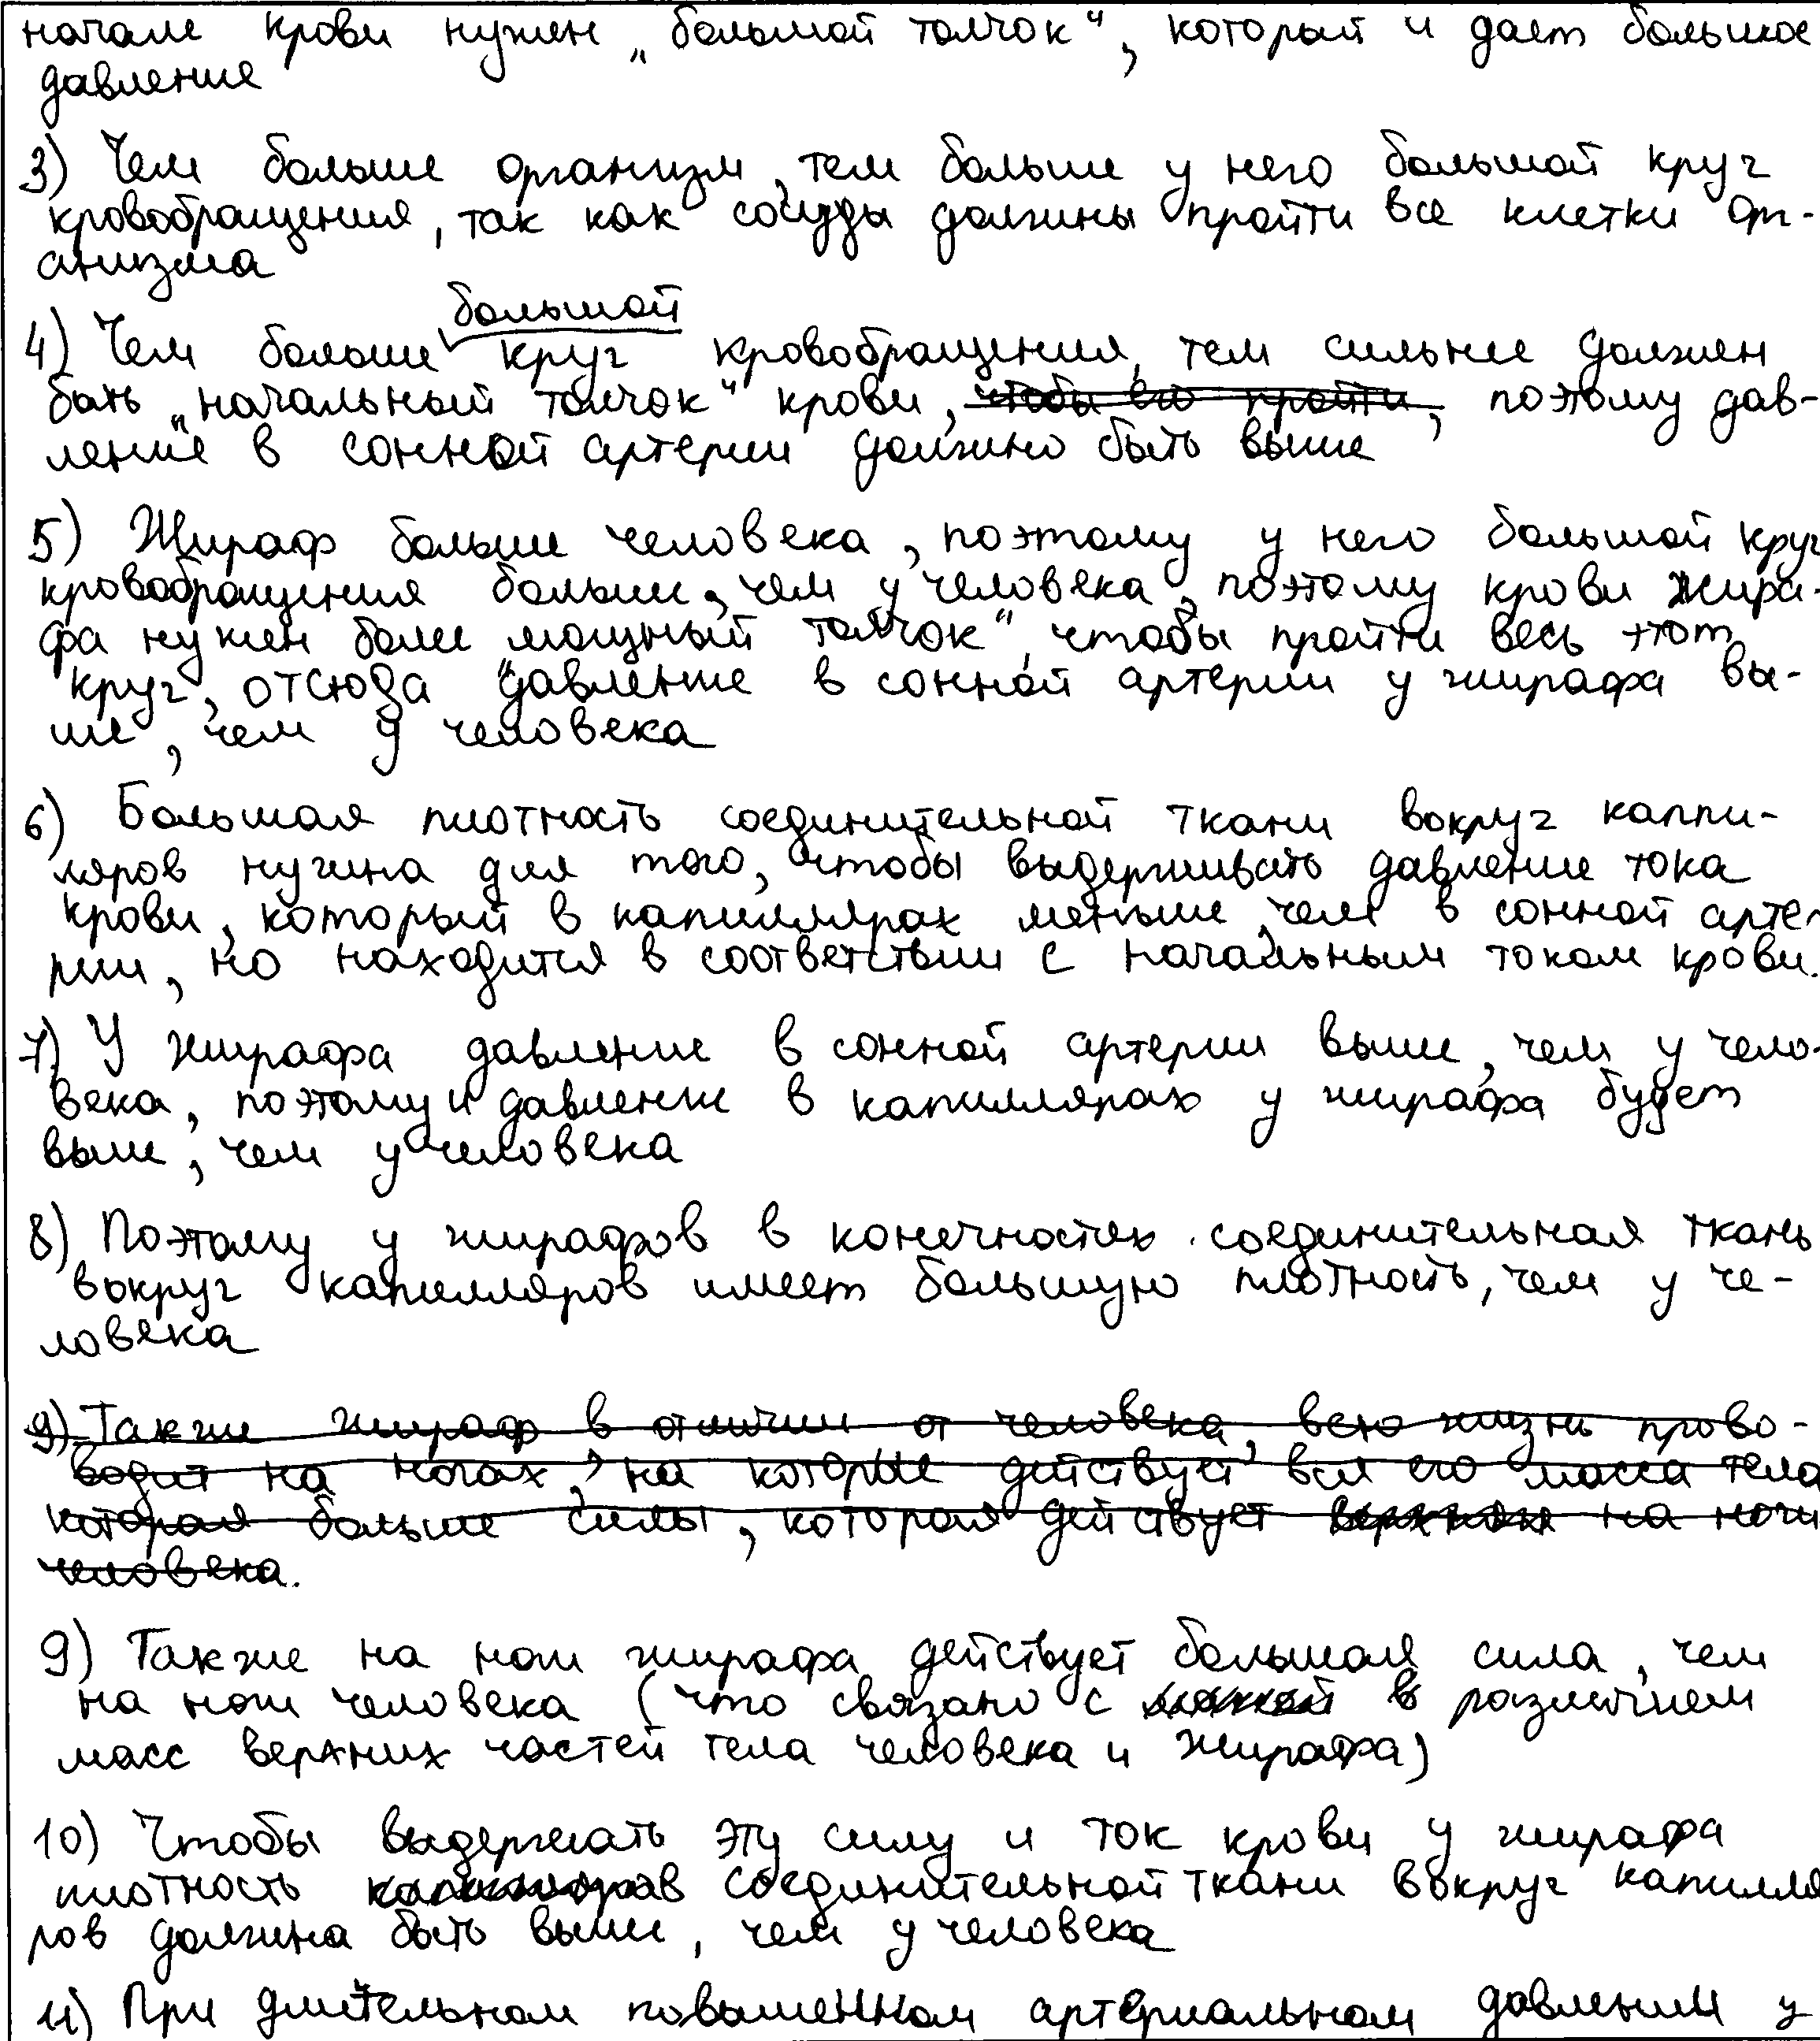 начале крови нужен „большой толчок“, который и дает большое
давление
3) Чем больше организм, тем больше у него большой круг
кровобращения, так как сосуды должны пройти все клетки орг-
анизма
большой
4) Чем больше круг кровобращения, тем сильнее должен
быть „начальный толчок“ крови, чтобы его пройти, поэтому дав-
ление в сонной артерии должно быть выше
5) Жираф больше человека, поэтому у него большой круг
кровобращения больше, чем у человека, поэтому крови жира-
фа нужен более мощный „толчок“, чтобы пройти весь этот
круг, отсюда давление в сонной артерии у жирафа вы-
ше, чем у человека
6) Большая плотность соединительной ткани вокруг каппи-
ляров нужна для того, чтобы выдерживать давление тока
крови, который в капиллярах меньше, чем в сонной арте-
рии, но находится в соответствии с начальным током крови.
7) У жирафа давление в сонной артерии выше, чем у чело-
века, поэтому и давление в капиллярах у жирафа будет
выше, чем у человека
8) Поэтому у жирафов в конечностях соединительная ткань
вокруг капилляров имеет большую плотность, чем у че-
ловека
9) Также жираф в отличии от человека, всю жизнь прово-
водит на ногах, на которые действует вся его масса тела
которая больше силы, которая действует на ноги
человека.
9) Также на ноги жирафа действует большая сила, чем
на ноги человека (что связано с в различием
масс верхних частей тела человека и жирафа)
10) Чтобы выдержать эту силу и ток крови у жирафа
плотность соединительной ткани вокруг капилля
ров должна быть выше, чем у человека
11) При длительном повышенном артериальном давлении у